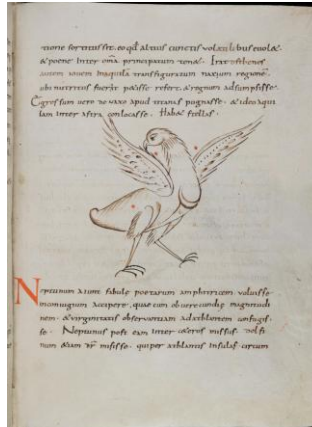 tione sortitus sit. eo qđ altius cunctis volatilibus evolet.
& poene inter om̄a principatum tonet. Iratosthenes
autem iovem in aquila transfiguratum naxium regione
ubi nutritus fuerat petisse refert. & regnum adsumpsisse.
Egressum vero de naxo apud titanas pugnasse. & ideo aqui
lam inter astra conlocasse. Habet stellas.
Neptunum aiunt fabulę poetarum amphitritem voluisse
in coniugium accipere, quae cum ob verecundię magnitudi
nem. & virginitatis observantiam ad athlantem confugis
se. Neptunus post eam inter ceteros missus. delfi
num &iam misisse. qui per athlantis insulas circum